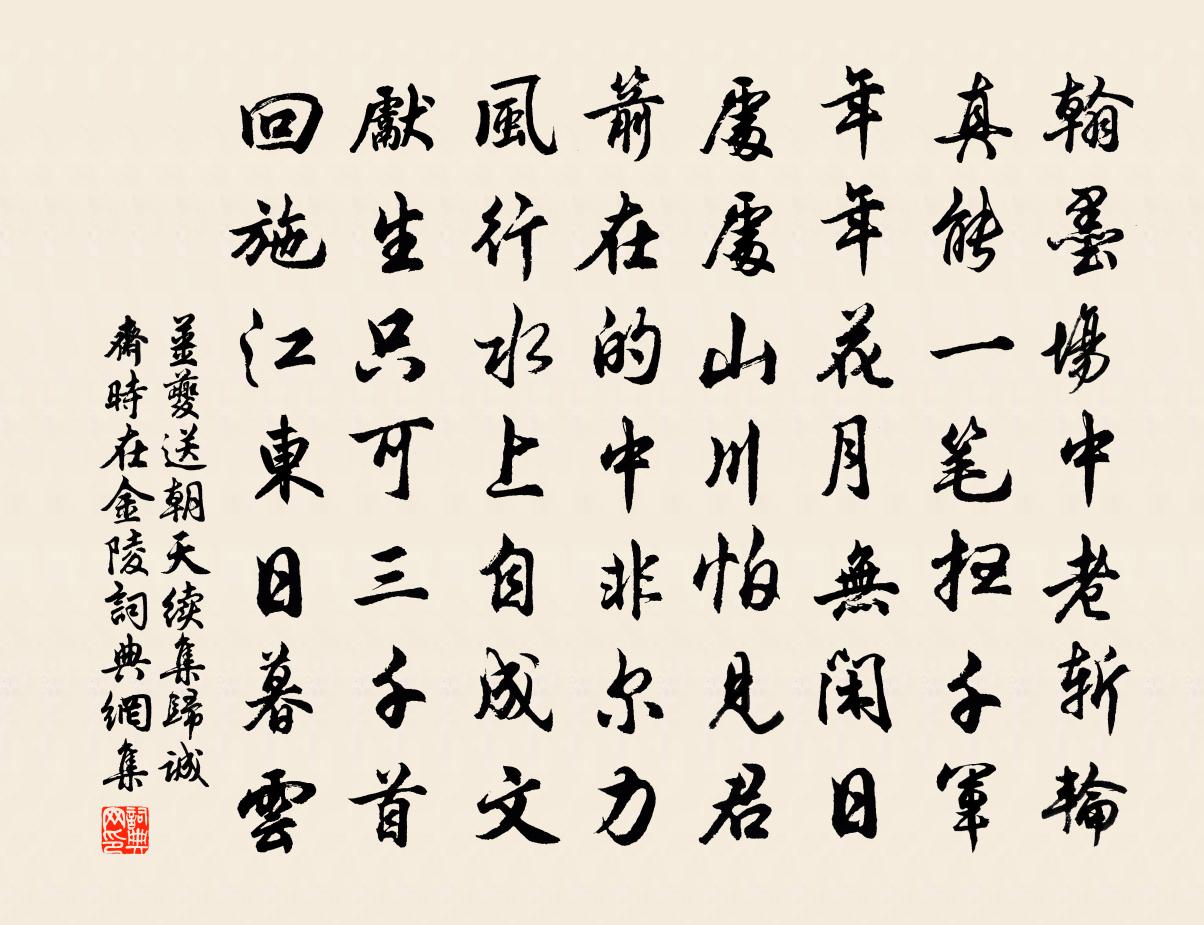 翰墨場中老斬輪
真能一笔扫千軍
年年花月無閑日
處處山川怕見君
箭在的中非尔力
風行水上自成文
獻生只可三千首
回施江東日暮雲
薑夔送朝天續集歸誠
齋時在金陵詞典網集
詞典网印